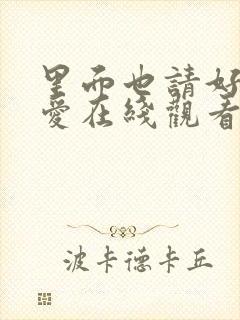 里而也請好
愛在綫觀看
波卡德卡丘